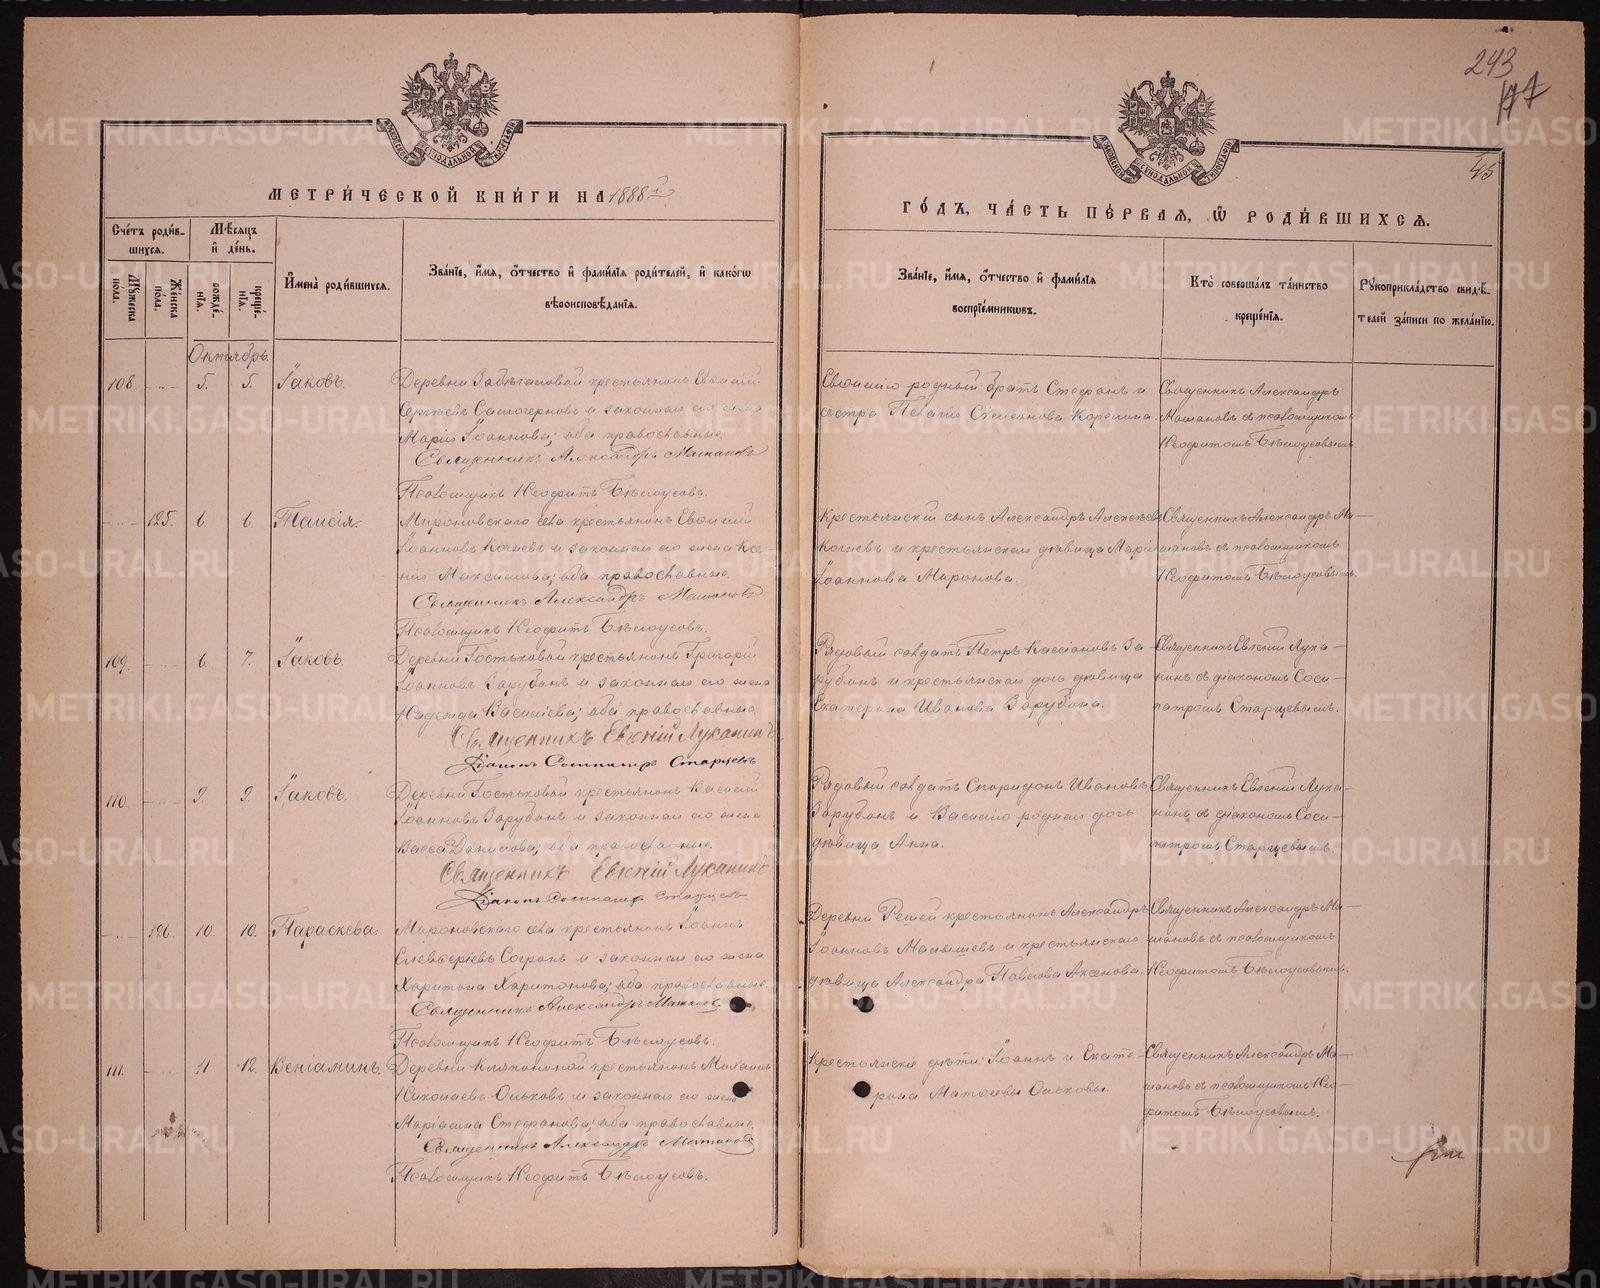 243
177
45
МЕТРИ́ЧЕСКОЙ КНИ́ГИ НА 1888 й
ГО́ДЪ, ЧА́СТЬ ПЕ́РВАЯ, Ѿ РОДИ́ВШИХСЯ.
Сче́тъ роди́в-
шихся.
Мѣ́сяцъ
и́ де́нь.
Мꙋжеска
пола.
Же́нска
по́ла.
рожде́-
нія.
креще́-
нія.
И҆мена̀ роди́вшихся.
Зва́ніе, и҆́мя, ѻ҆́тчество и҆ фами́лія роди́телей, и҆ како́гѡ
вѣроисповѣ́данія.
Зва́ніе, и҆́мя, ѻ҆́тчество и҆ фами́лія
воспріе́мникѡвъ.
Кто̀ соверша́лъ та́инство
креще́нія.
Рꙋкоприкла́дство свидѣ́-
телей за́писи по жела́нію.
Октябрь.
108. 5. 5. Іаковъ.
Деревни крестьянинъ Евѳимій
Сергѣевъ Самочерновъ и законная его жена
Марія Іоаннова; оба православные.
Священникъ Александръ Мошановъ
Псаломщикъ Неофитъ Бѣлоусовъ.
родный братъ Стефанъ и
сестра Пелагія Симеонова Корелина.
Священникъ Александръ
Мошановъ съ псаломщикомъ
Неофитомъ Бѣлоусовымъ.
125. 6. 6. Таисія.
Мироновскаго села крестьянинъ Евѳимій
Іоанновъ Кочневъ и законная его жена Ксе-
нія Максимова; оба православные.
Священникъ Александръ Мошановъ
Псаломщикъ Неофитъ Бѣлоусовъ.
Крестьянскій сынъ Александръ Алексѣевъ
Кочневъ и крестьянская дѣвица Марія
Іоаннова Миронова.
Священникъ Александръ Мо-
шановъ съ псаломщикомъ
Неофитомъ Бѣлоусовымъ.
109. 6. 7. Іаковъ.
Деревни Гостьковой крестьянинъ Григорій
Іоанновъ Зарубинъ и законная его жена
Надежда Васильева; оба православные.
Священникъ Евгеній Луканинъ
Діаконъ Сосипатръ Старцевъ
Рядовый солдатъ Петръ Кассіановъ За-
рубинъ и крестьянская дочь дѣвица
Екатерина Иванова Зарубина.
Священникъ Евгеній Лука-
нинъ съ діакономъ Соси-
патромъ Старцевымъ.
110. 9. 9. Іаковъ.
Деревни Гостьковой крестьянинъ Василій
Іоанновъ Зарубинъ и законная его жена
Васса Данилова; оба православные.
Священникъ Евгеній Луканинъ
Діаконъ Сосипатръ Старцевъ
Рядовый солдатъ Спиридонъ Ивановъ
Зарубинъ и Василія родная дочь
дѣвица Анна.
Священникъ Евгеній Лука-
нинъ съ діакономъ Соси-
патромъ Старцевымъ.
126. 10. 10. Параскева.
Мироновскаго села крестьянинъ Іоаннъ
Елевферіевъ Согринъ и законная его жена
Харитина Харитонова; оба православные.
Священникъ Александръ Мошановъ
Псаломщикъ Неофитъ Бѣлоусовъ.
Деревни Решей крестьянинъ Александръ
Іоанновъ Малышевъ и крестьянская
дѣвица Александра Павлова Аксенова.
Священникъ Александръ Мо-
шановъ съ псаломщикомъ
Неофитомъ Бѣлоусовымъ.
111. 11 12. Веніаминъ.
Деревни крестьянинъ Михаилъ
Николаевъ Ольковъ и законная его жена
Маріамна Стефанова; оба православные.
Священникъ Александръ Мошановъ
Псаломщикъ Неофитъ Бѣлоусовъ.
Крестьянскіе дѣти: Іоаннъ и Екате-
рина Матѳіевы Ольковы.
Священникъ Александръ Мо-
шановъ съ псаломщикомъ Нео-
фитомъ Бѣлоусовымъ.
METRIKI.GASO-URAL.RU